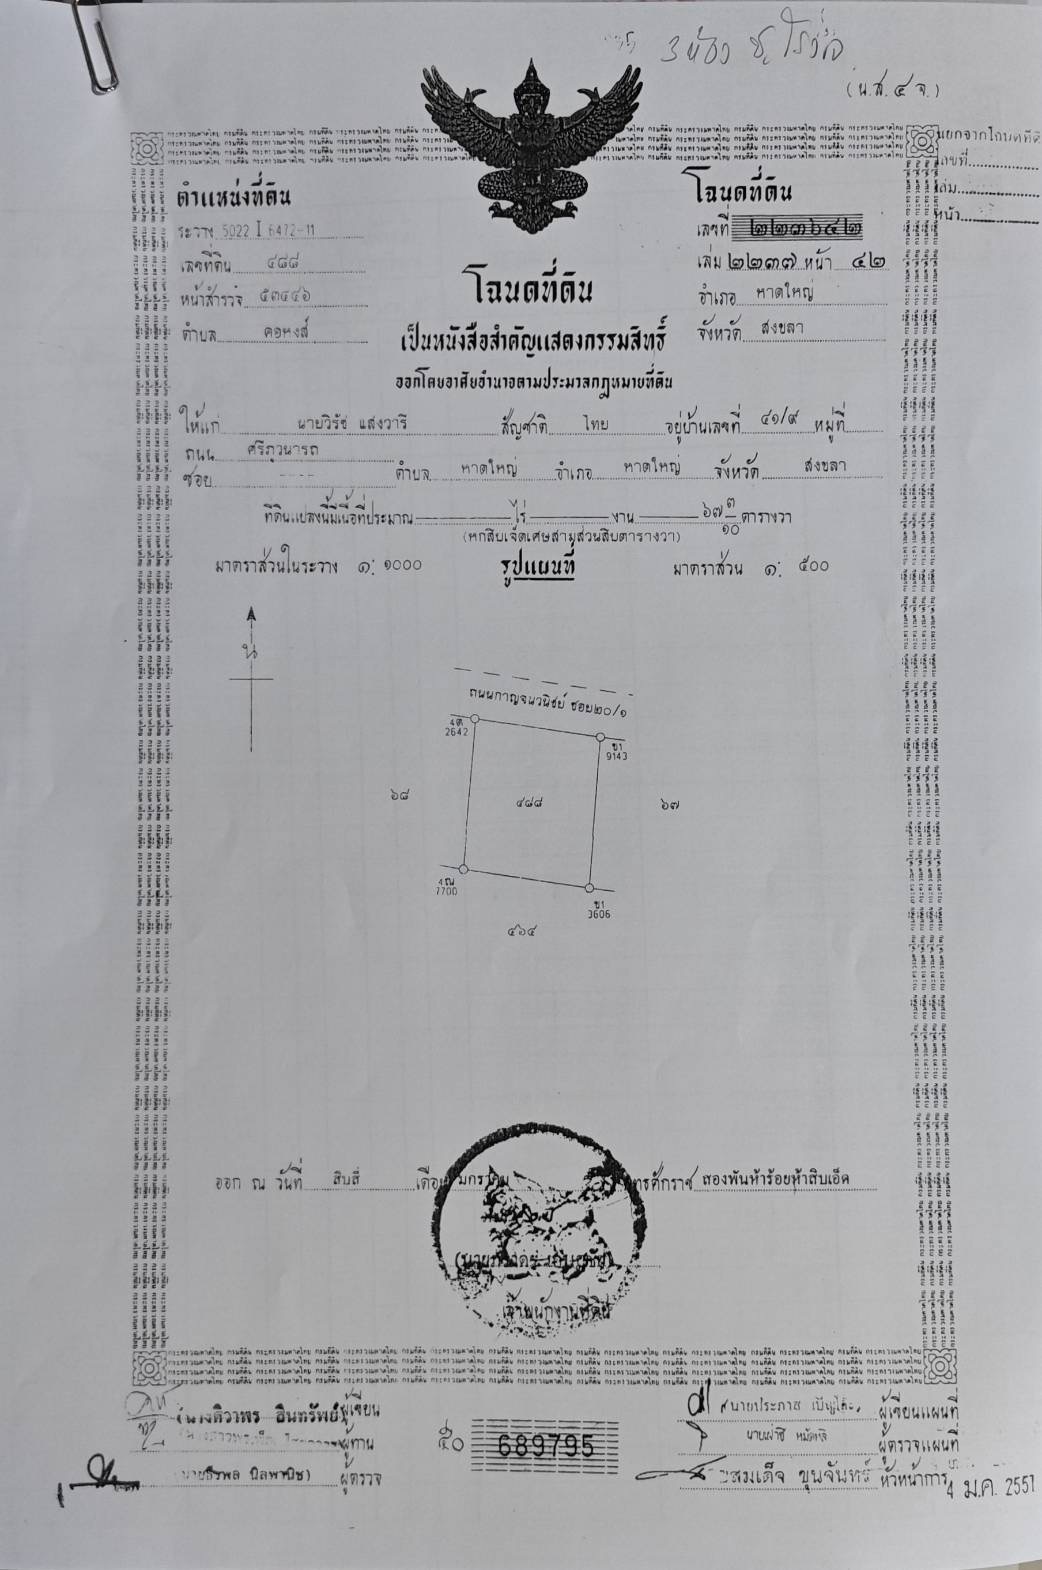 3 ห้อง
(น.ส.๔ จ.)
ตำแหน่งที่ดิน
ระวาง 5022 I 6472-11
เลขที่ดิน ๔๘๘
หน้าสำรวจ ๕๓๔๔๖
ตำบล คอหงส์
โฉนดที่ดิน
เลขที่ ๒๒๓๖๔๒
เล่ม ๒๒๓๗ หน้า ๔๒
อำเภอ หาดใหญ่
จังหวัด สงขลา
เลขที่
เล่ม
หน้า
โฉนดที่ดิน
เป็นหนังสือสำคัญแสดงกรรมสิทธิ์
ออกโดยอาศัยอำนาจตามประมวลกฎหมายที่ดิน
ให้แก่ นายวิรัช แสงวารี สัญชาติ ไทย อยู่บ้านเลขที่ ๔๑/๙ หมู่ที่
ถนน ศรีภูวนารถ
ซอย ---- ตำบล หาดใหญ่ อำเภอ หาดใหญ่ จังหวัด สงขลา
ที่ดินแปลงนี้มีเนื้อที่ประมาณ — ไร่ — งาน ๖๗ ๓/๑๐ ตารางวา
(หกสิบเจ็ดเศษสามส่วนสิบตารางวา)
มาตราส่วนในระวาง ๑: ๑๐๐๐ รูปแผนที่ มาตราส่วน ๑: ๕๐๐
น
ถนนกาญจนวนิชย์ ซอย๒๐/๑
4ต
2642
ข1
9143
๖๘
๔๘๘
๖๗
4ณ
7700
ข1
3606
๔๖๔
ออก ณ วันที่ สิบสี่ เดือน มกราคม พุทธศักราช สองพันห้าร้อยห้าสิบเอ็ด
เจ้าพนักงานที่ดิน
(นางทิวาพร อินทรัพย์) ผู้เขียน
ผู้ทาน
(นายธีรพล นิลพานิช) ผู้ตรวจ
๕๐
689795
นายประภาส ผู้เขียนแผนที่
ผู้ตรวจแผนที่
สมเด็จ ขุนจันทร์ หัวหน้าการ
4 ม.ค. 2551